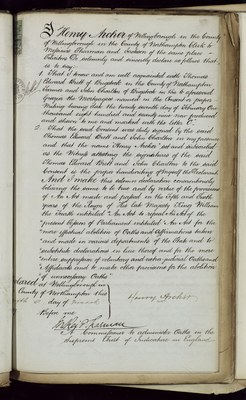 I Henry Archer of Wellingborough in the County
of Wellingborough in the County of Northampton Clerk to
Solicitors of the same place
do solemnly and sincerely declare as follows that
is to say:
1. That I know and am well acquainted with Thomas
Edward Bird of Burystead in the County of Northampton
Farmer and John Charlton of Burystead in the
Grazier the Mortgagees named in the Consent in paper
Writing bearing date the twenty seventh day of February One
thousand eight hundred and ninety nine now produced
and shown to me and marked with the letter
2. That the said Consent was duly signed by the said
Thomas Edward Bird and John Charlton in my presence
and that the name Henry Archer set and subscribed
as the Witness attesting the signatures of the said
Thomas Edward Bird and John Charlton to the said
Consent is the proper handwriting of myself the Declarant
And I make this solemn declaration conscientiously
believing the same to be true and by virtue of the provisions
of an Act made and passed in the fifth and Sixth
years of the Reign of His late Majesty King William
the fourth intituled "An Act to repeal an Act of the
present Session of Parliament intituled An Act for the
more effectual abolition of Oaths and Affirmations taken
and made in various departments of the State and to
substitute declarations in lieu thereof and for the more
entire suppression of voluntary and extra judicial Oaths and
Affidavits and to make other provisions for the abolition
of unnecessary Oaths"
Declared at Wellingborough in
County of Northampton this
day of
Before me
Henry Archer
A Commissioner to administer Oaths in the
Supreme Court of Judicature in England